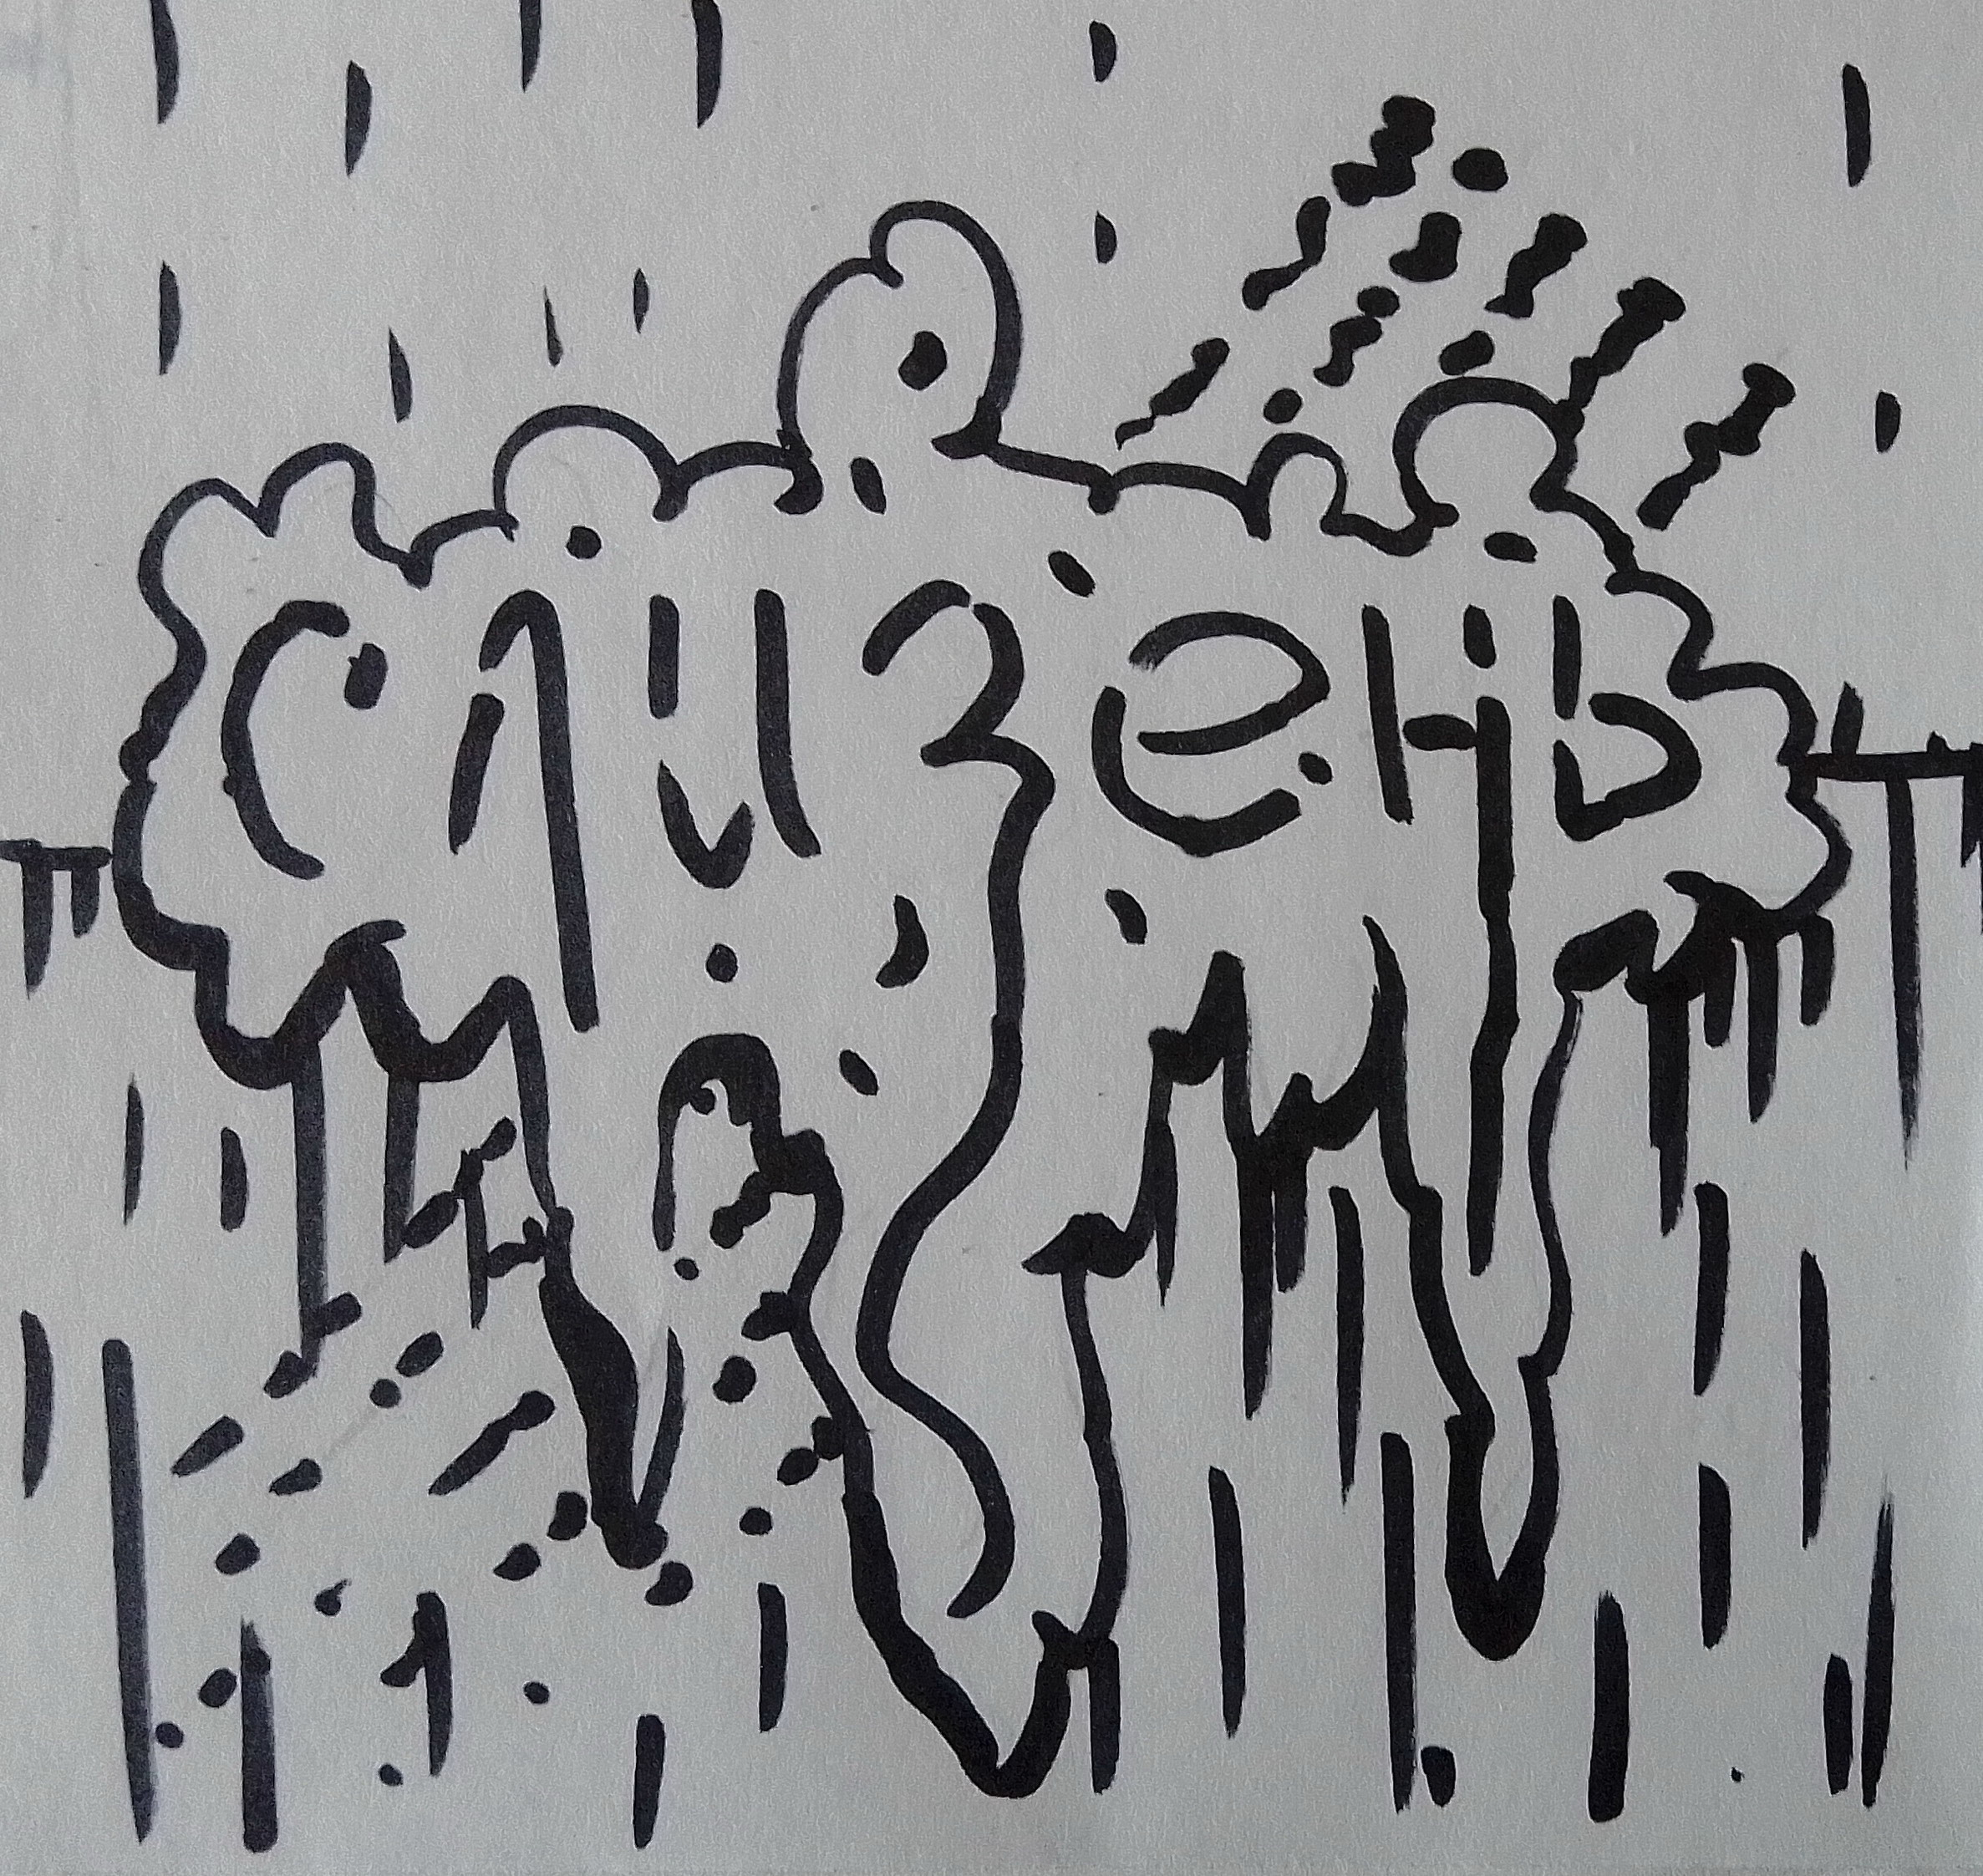 Слизень